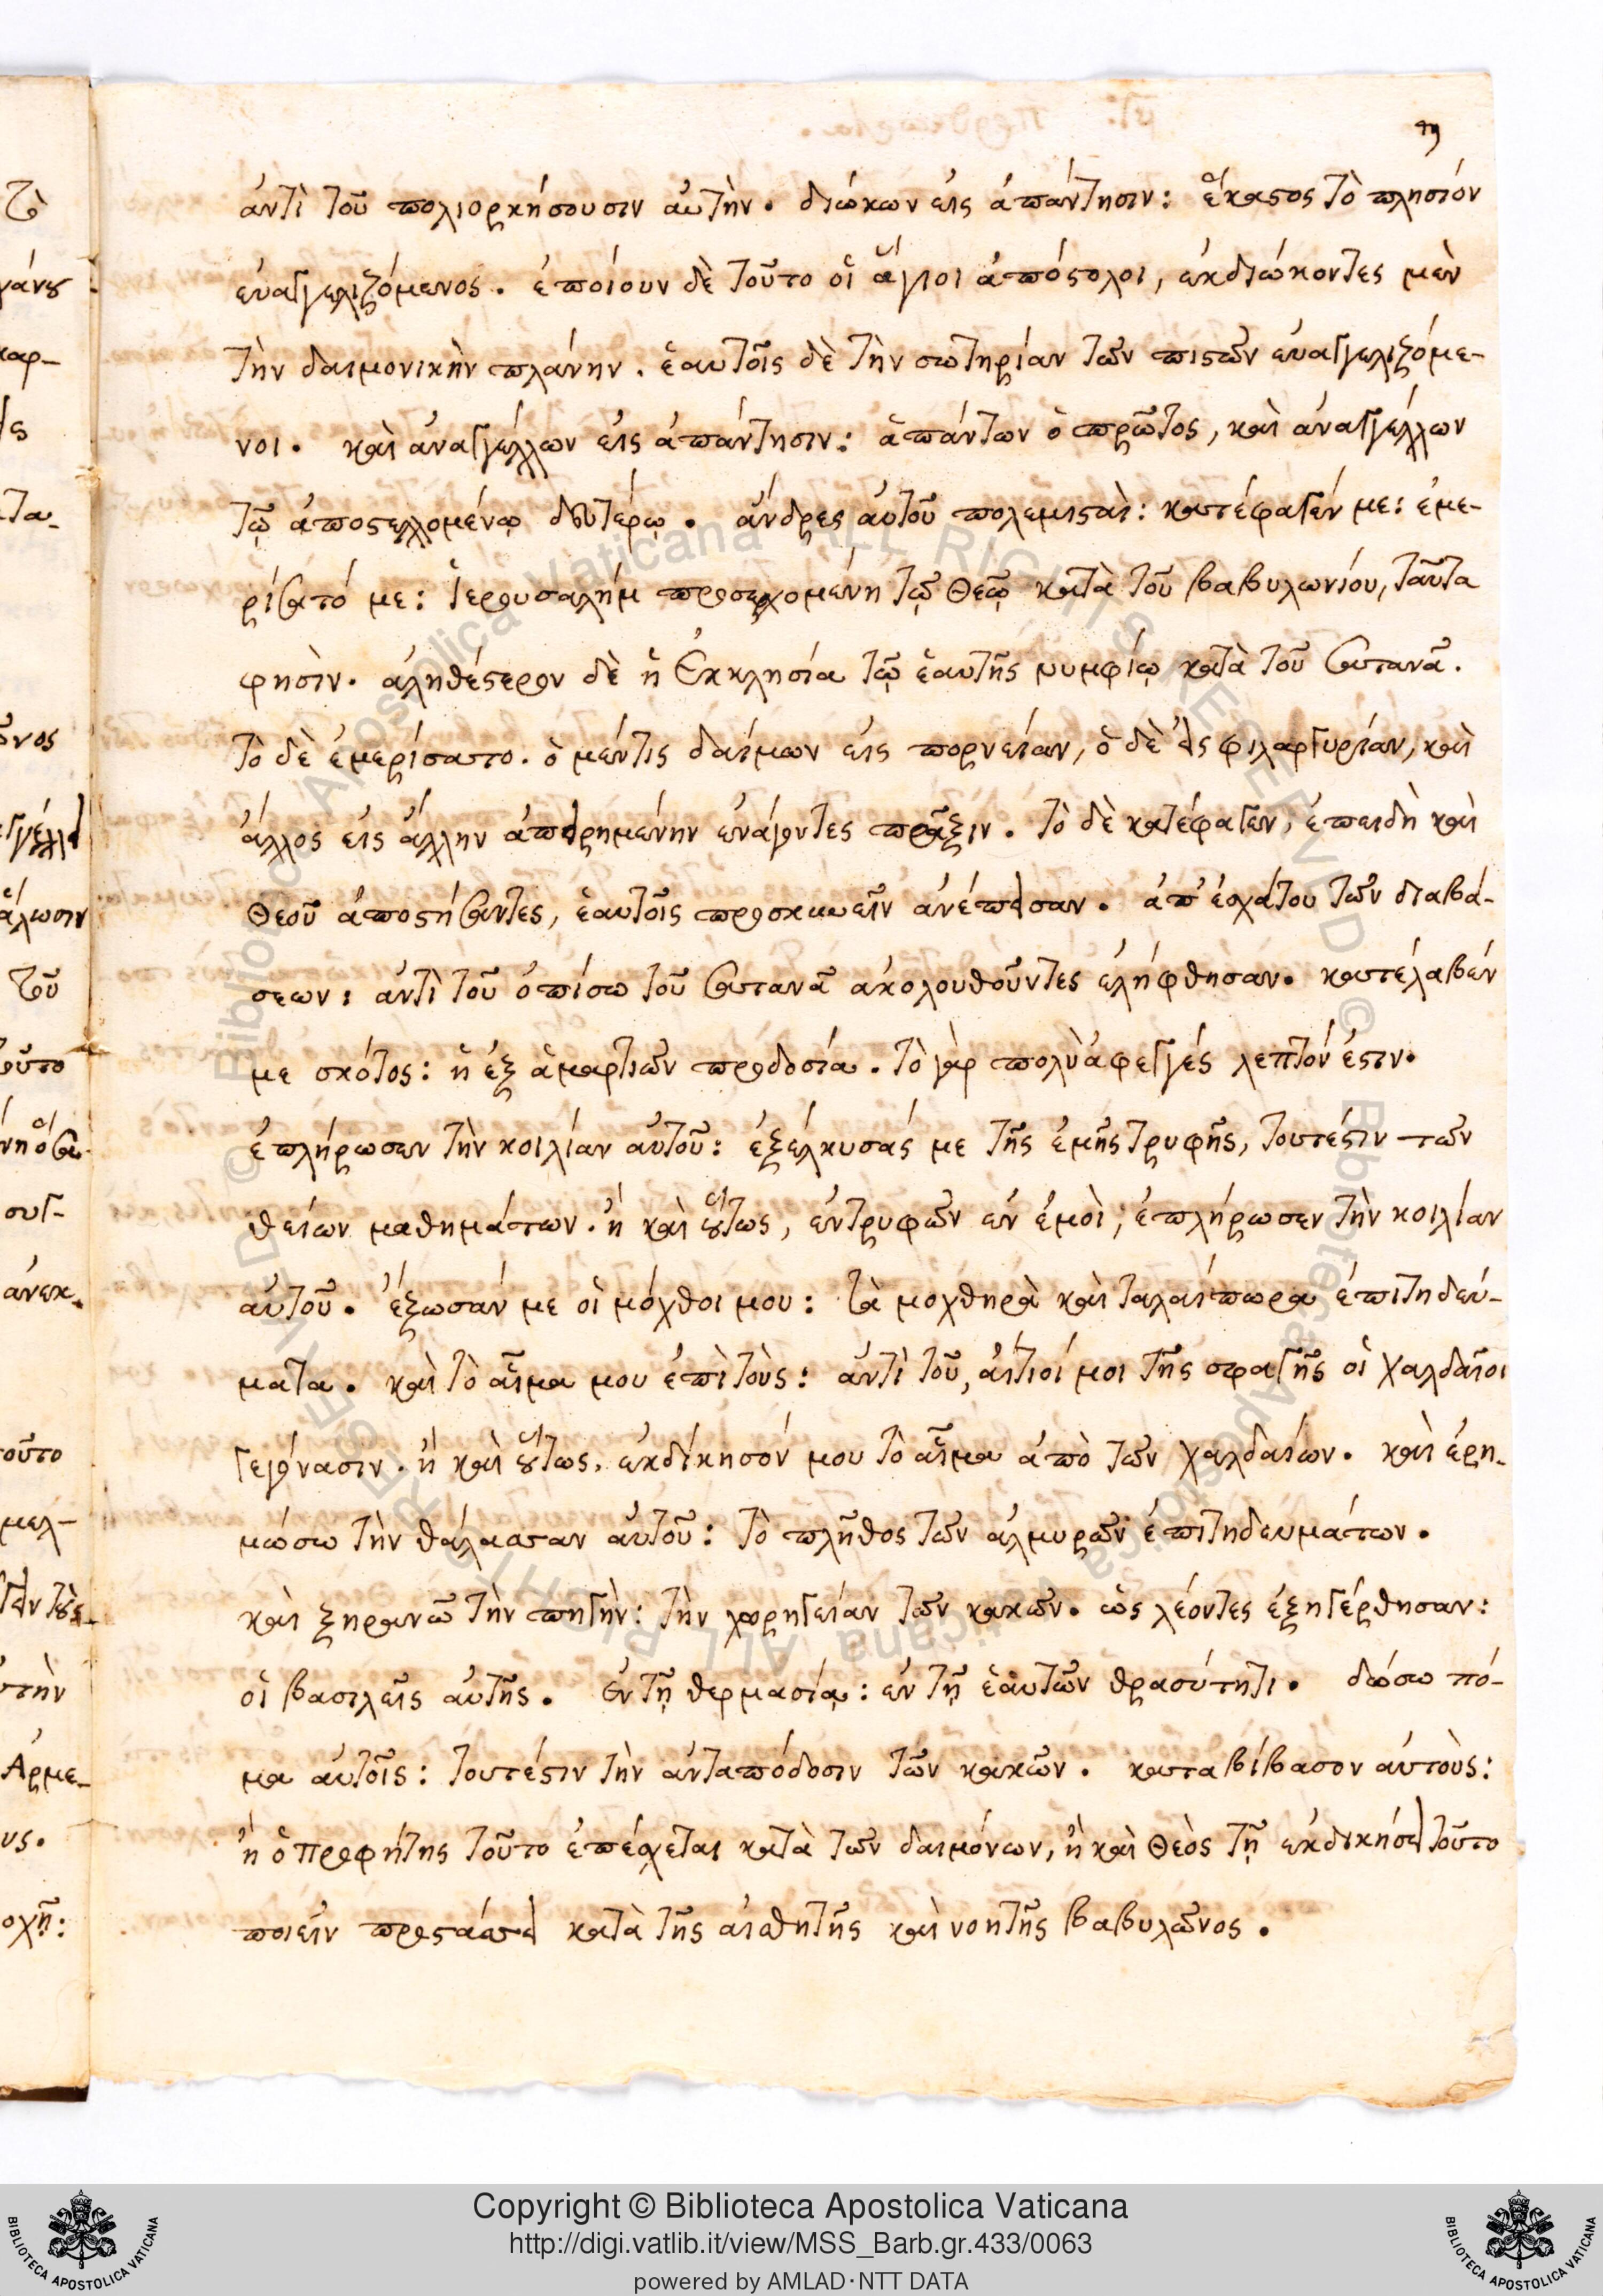 ἀντὶ τοῦ πολιορκήσουσιν αὐτὴν. διώκων εἰς ἀπάντησιν: ἕκαστος τὸ πλησιόν
εὐαγγελιζόμενος. ἐποίουν δὲ τοῦτο οἱ ἅγιοι ἀπόστολοι, ἐκδιώκοντες μὲν
τὴν δαιμονικὴν πλάνην. ἑαυτοῖς δὲ τὴν σωτηρίαν τῶν πιστῶν εὐαγγελιζόμε-
νοι. καὶ ἀναγγέλλων εἰς ἀπάντησιν: ἁπάντων ὁ πρῶτος, καὶ ἀναγγέλλων
τῷ ἀποστελλομένῳ δευτέρῳ. ἄνδρες αὐτοῦ πολεμισταὶ: κατέφαγέν με: ἐμε-
ρίσατό με: Ἱερουσαλήμ προσευχομένη τῷ Θεῷ κατὰ τοῦ βαβυλωνίου, ταῦτα
φησὶν. ἀληθέστερον δὲ ἡ Ἐκκλησία τῷ ἑαυτῆς νυμφίῳ κατὰ τοῦ σατανᾶ.
τὸ δὲ ἐμερίσατο. ὁ μέντις δαίμων εἰς πορνείαν, ὁ δὲ εἰς φιλαργυρίαν, καὶ
ἄλλος εἰς ἄλλην ἀπειρημένην ἐνάγοντες πρᾶξιν. τὸ δὲ κατέφαγεν, ἐπειδὴ καὶ
Θεοῦ ἀποστήσαντες, ἑαυτοῖς προσκυνεῖν ἀνέπεισαν. ἀπ' ἐσχάτου τῶν διαβά-
σεων: ἀντὶ τοῦ ὀπίσω τοῦ σατανᾶ ἀκολουθοῦντες ἐλήφθησαν. κατέλαβέν
με σκότος: ἡ ἐξ ἁμαρτιῶν προδοσία. τὸ γὰρ πολὺ ἀφεγγές λεπτόν ἐστιν.
ἐπλήρωσεν τὴν κοιλίαν αὐτοῦ: ἐξείλκυσάς με τῆς ἐμῆς τρυφῆς, τουτέστιν τῶν
θείων μαθημάτων. ἢ καὶ οὕτως, ἐντρυφῶν ἐν ἐμοὶ, ἐπλήρωσεν τὴν κοιλίαν
αὐτοῦ. ἐξῶσάν με οἱ μόχθοι μου: τὰ μοχθηρὰ καὶ ταλαίπωρα ἐπιτηδεύ-
ματα. καὶ τὸ αἷμα μου ἐπὶ τοὺς: ἀντὶ τοῦ, αἴτιοί μοι τῆς σφαγῆς οἱ χαλδαῖοι
γεγόνασιν. ἢ καὶ οὕτως, ἐκδίκησόν μου τὸ αἷμα ἀπὸ τῶν χαλδαίων. καὶ ἐρη-
μώσω τὴν θάλασσαν αὐτοῦ: τὸ πλῆθος τῶν ἁλμυρῶν ἐπιτηδευμάτων.
καὶ ξηρανῶ τὴν πηγὴν: τὴν χορηγείαν τῶν κακῶν. ὡς λέοντες ἐξηγέρθησαν:
οἱ βασιλεῖς αὐτῆς. ἐν τῇ θερμασίᾳ: ἐν τῇ ἑαυτῶν θρασύτητι. δώσω πό-
μα αὐτοῖς: τουτέστιν τὴν ἀνταπόδοσιν τῶν κακῶν. καταβίβασον αὐτοὺς:
ἢ ὁ προφήτης τοῦτο ἐπεύχεται κατὰ τῶν δαιμόνων, ἢ καὶ Θεὸς τῇ ἐκδικήσει τοῦτο
ποιεῖν προστάσσει κατὰ τῆς αἰσθητῆς καὶ νοητῆς βαβυλῶνος.
Copyright © Biblioteca Apostolica Vaticana
http://digi.vatlib.it/view/MSS_Barb.gr.433/0063
powered by AMLAD·NTT DATA